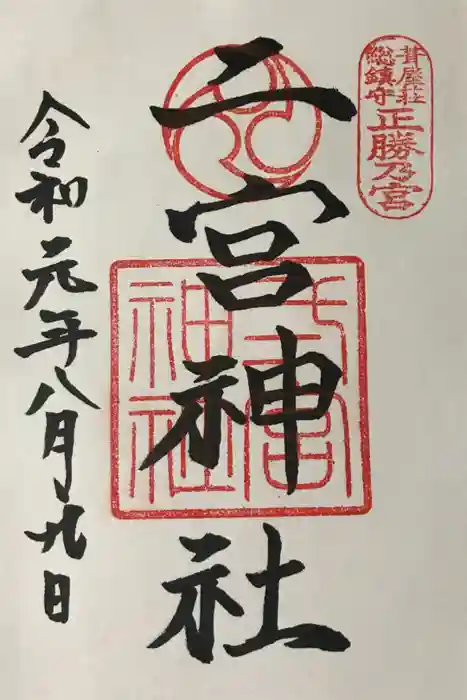 葺屋荘
総鎮守
正勝乃宮
二宮神社
宮
神社
令和元年八月九日